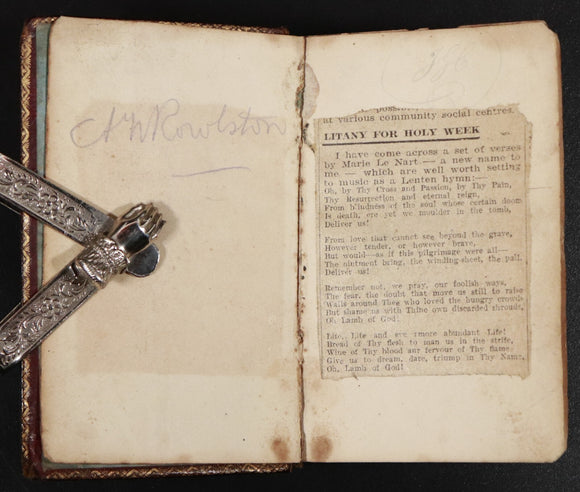 A W Rowlston
386
at various community social centres.
LITANY FOR HOLY WEEK
I have come across a set of verses
by Marie Le Nart — a new name to
me — which are well worth setting
to music as a Lenten hymn:—
Oh, by Thy Cross and Passion, by Thy Pain,
Thy Resurrection and eternal reign,
From blindness of the soul whose certain doom
Is death, ere yet we moulder in the tomb,
Deliver us!
From love that cannot see beyond the grave,
However tender, or however brave,
But would—as if this pilgrimage were all—
The ointment bring, the winding-sheet, the pall.
Deliver us!
Remember not, we pray, our foolish ways,
The fear, the doubt that move us still to raise
Walls around Thee who loved the hungry crowds
But shame us with Thine own discarded shrouds,
Oh Lamb of God!
Life, Life and ever more abundant Life!
Bread of Thy flesh to man us in the strife,
Wine of Thy blood our fervour of Thy flame
Give us to dream, dare, triump in Thy Name,
Oh, Lamb of God!